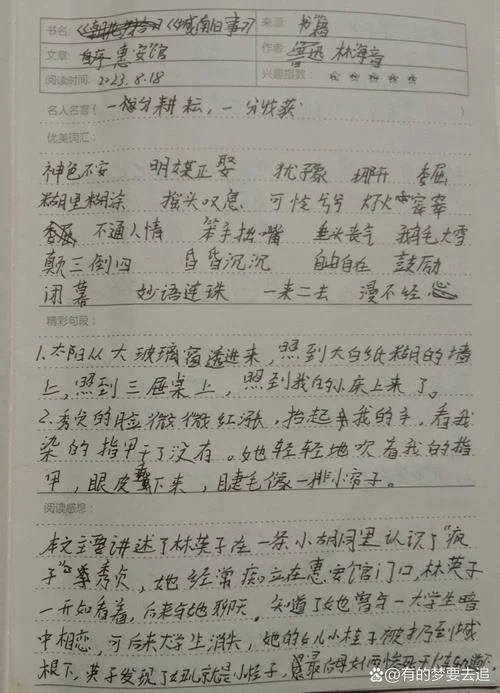 书名:《朝花夕拾》《城南旧事》 来源: 书籍
文章: 自序 惠安馆 作者: 鲁迅 林海音
阅读时间: 2023.8.18 兴趣指数: ☆ ☆ ☆ ☆ ☆
名人名言( 一份耕耘,一分收获
优美词汇:
神色不安 明媒正娶 犹豫 挪开 委屈
糊里糊涂 摇头叹息 可怜兮兮 灯火
不通人情 笨手拙嘴 垂头丧气 鹅毛大雪
颠三倒四 昏昏沉沉 自由自在 鼓励
闭幕 妙语连珠 一来二去 漫不经心
精彩句段:
1.太阳从大玻璃窗透进来,照到大白纸糊的墙
上,照到三屉桌上,照到我的小床上来了。
2.秀贞的脸微微红涨,抬起我的手,看我
染的指甲干了没有。她轻轻地吹着我的指
甲,眼皮垂下来,睫毛像一排小帘子。
阅读感想:
本文主要讲述了林英子在一条小胡同里认识了“疯
子”秀贞,她经常痴立在惠安馆门口,林英子
一开始看着,后来与她聊天,知道了她曾与一大学生暗
中相恋,可后来大学生消失,她的女儿小桂子被扔到城
根下,英子发现了妞儿就是小桂子,
@有的梦要去追